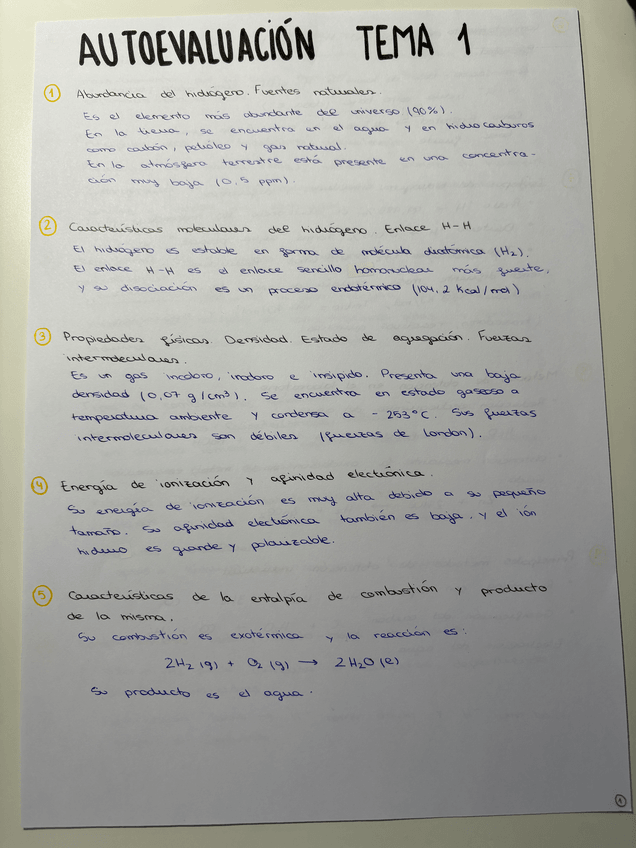 AUTOEVALUACIÓN TEMA 1
① Abundancia del hidrógeno. Fuentes naturales.
Es el elemento más abundante del universo (90%).
En la tierra, se encuentra en el agua y en hidrocarburos
como carbón, petróleo y gas natural.
En la atmósfera terrestre está presente en una concentra-
ción muy baja (0,5 ppm).
② Características moleculares del hidrógeno. Enlace H-H
El hidrógeno es estable en forma de molécula diatómica (H₂).
El enlace H-H es el enlace sencillo homonuclear más fuerte,
y su disociación es un proceso endotérmico (104,2 Kcal/mol)
③ Propiedades físicas. Densidad. Estado de agregación. Fuerzas
intermoleculares.
Es un gas incoloro, inodoro e insípido. Presenta una baja
densidad (0,07 g/cm³). Se encuentra en estado gaseoso a
temperatura ambiente y condensa a -253°C. Sus fuerzas
intermoleculares son débiles (fuerzas de london).
④ Energía de ionización y afinidad electrónica.
Su energía de ionización es muy alta debido a su pequeño
tamaño. Su afinidad electrónica también es baja, y el ión
hidruro es grande y polarizable.
⑤ Características de la entalpía de combustión y producto
de la misma.
Su combustión es exotérmica y la reacción es:
2H₂ (g) + O₂ (g) → 2H₂O (l)
Su producto es el agua.
①